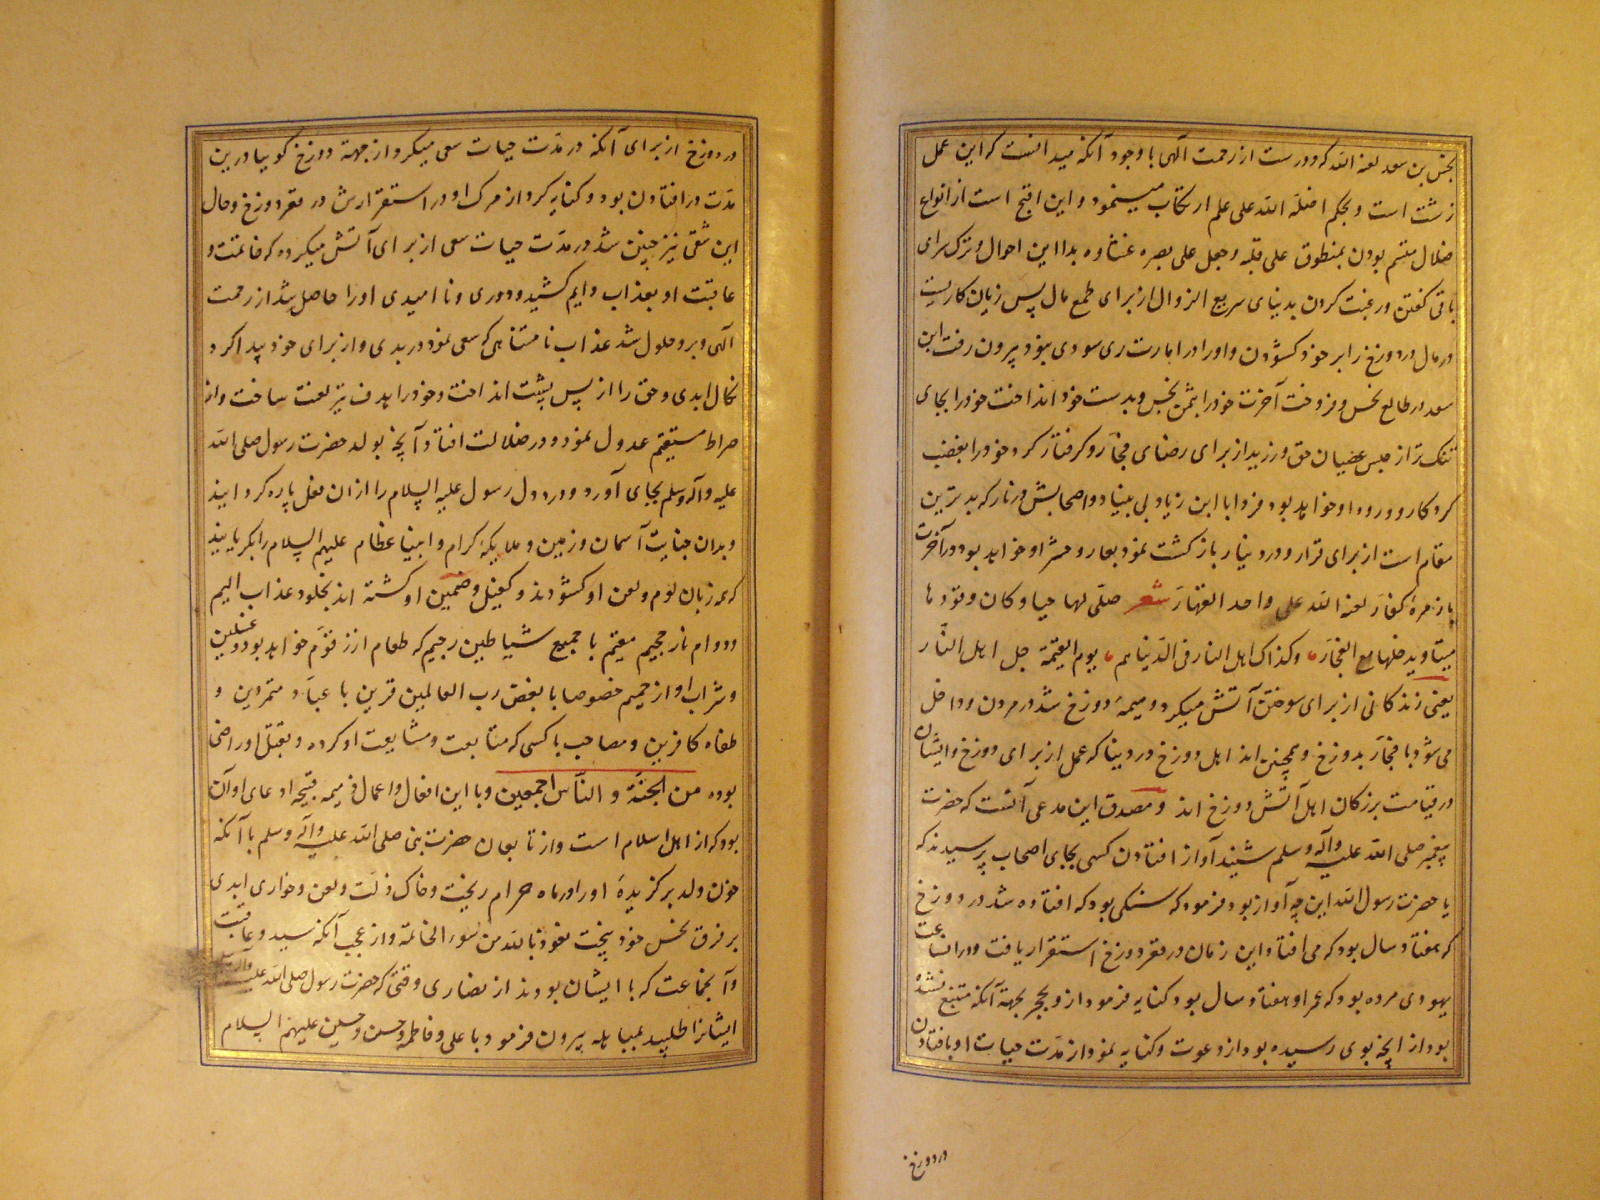 نجس بن سعد لعنه الله که دورست از رحمت الهی با وجود آنکه میدانست که این عمل
زشت است و بحکم اضله الله علی علم ارتکاب مینمود و این اقبح است از انواع
ضلال متسم بودن بمنطوق علی قلبه و جعل علی بصره غشاوه بدا این احوال و ترک سرای
باقی گفتن و رغبت کردن بدنیای سریع الزوال از برای طمع مال پس زیان کاریست
در مال و دوزخ را بر خود کشودن و او را در امارت ری سودی نبود بیرون رفت ابن
سعد در طالع نحس و فروخت آخرت خود را بثمن بخس و بدست خود انداخت خود را بجای
تنک‌تر از حبس عصیان حق ورزید از برای رضای فجار و گرفتار کرد خود را بغضب
کردکار و ورود او خواهد بود فردا با ابن زیاد بی بنیاد و اصحابش در نار که بدترین
مقام است از برای قرار و در دنیا باز کشت نمود بعار و حشر او خواهد بود در آخرت
با زمره کفار لعنه الله علی واحد القهار شعر صلی لها حیا و کان وقودها
میتا و یدخلها مع الفجار وکذاک اهل النار فی الدنیا هم یوم القیمة جل اهل النار
یعنی زندکانی از برای سوختن آتش میکرد و هیمهٔ دوزخ شد در مردن و داخل
می شود با فجار بدوزخ و همچنین اند اهل دوزخ در دنیا که عمل از برای دوزخ و ایشان
در قیامت بزرکان اهل آتش دوزخ اند و مصدق این مدعی آنست که حضرت
پیغمبر صلی الله علیه وآله وسلم شنید آواز افتادن کسی بجای اصحاب پرسیدند که
یا حضرت رسول الله این چه آواز بود فرمود که سنکی بود که افتاده شد در دوزخ
که هفتاد سال بود که می افتاد و این زمان در قعر دوزخ استقرار یافت و در ان ساعت
یهودی مرده بود که عمر او هفتاد سال بود کنایه فرمود از و بحجر بجهة آنکه منتفع نشده
بود از آنچه بوی رسیده بود از دعوت و کنایه نمود از مدت حیات او بافتادن
در دوزخ
در دوزخ از برای آنکه در مدت حیات سعی میکرد از جهة دوزخ کویا در ین
مدت در افتادن بود و کنایه کرد از مرک او در استقرارش در قعر دوزخ و حال
این شقی نیز چنین شد در مدت حیات سعی از برای آتش میکرده که خاتمت و
عاقبت او بعذاب دایم کشید و دوری و ناامیدی او را حاصل شد از رحمت
الهی و برو حلول شد عذاب نامتناهی که سعی نمود در بدی و از برای خود پیدا کرد
نکال ابدی و حق را از پس پشت انداخت و خود را هدف تیر لعنت ساخت و از
صراط مستقیم عدول نمود و در ضلالت افتاد و آنچه بولد حضرت رسول صلی الله
علیه وآله وسلم بجای آورد و در دل رسول علیه السلام را از ان فعل پاره کردانید
و بدان جنایت آسمان و زمین و ملایکهٔ کرام و انبیا عظام علیهم السلام را بگریانید
که همه زبان لوم و لعن او کشودند و کفیل و ضمین او کشته اند بخلود عذاب الیم
و دوام نار جحیم مقیم با جمیع شیاطین رجیم که طعام از زقوم خواهد بود و غسلین
و شراب او از حمیم خصوصا با بغض رب العالمین قرین با عباد متمردین و
طغاه کافرین و مصاحب با کسی که متابعت و مشایعت او کرده و بقتل او راضی
بوده من الجنة و الناس اجمعین و با این افعال و اعمال ذمیمه قبیحه ادعای او آن
بود که از اهل اسلام است و از تابعان حضرت نبی صلی الله علیه وآله وسلم با آنکه
خون ولد برکزیدهٔ او را در ماه حرام ریخت و خاک ذلت و لعن و خواری ابدی
بر فرق نحس خود بیخت نعوذ بالله من سوء الخاتمة و از عجب آنکه سید و عاقب
و آنجماعت که با ایشان بودند از نصاری وقتی که حضرت رسول صلی الله علیه وآله وسلم
ایشانرا طلبید بمباهله بیرون فرمود با علی و فاطمه و حسن و حسین علیهم السلام